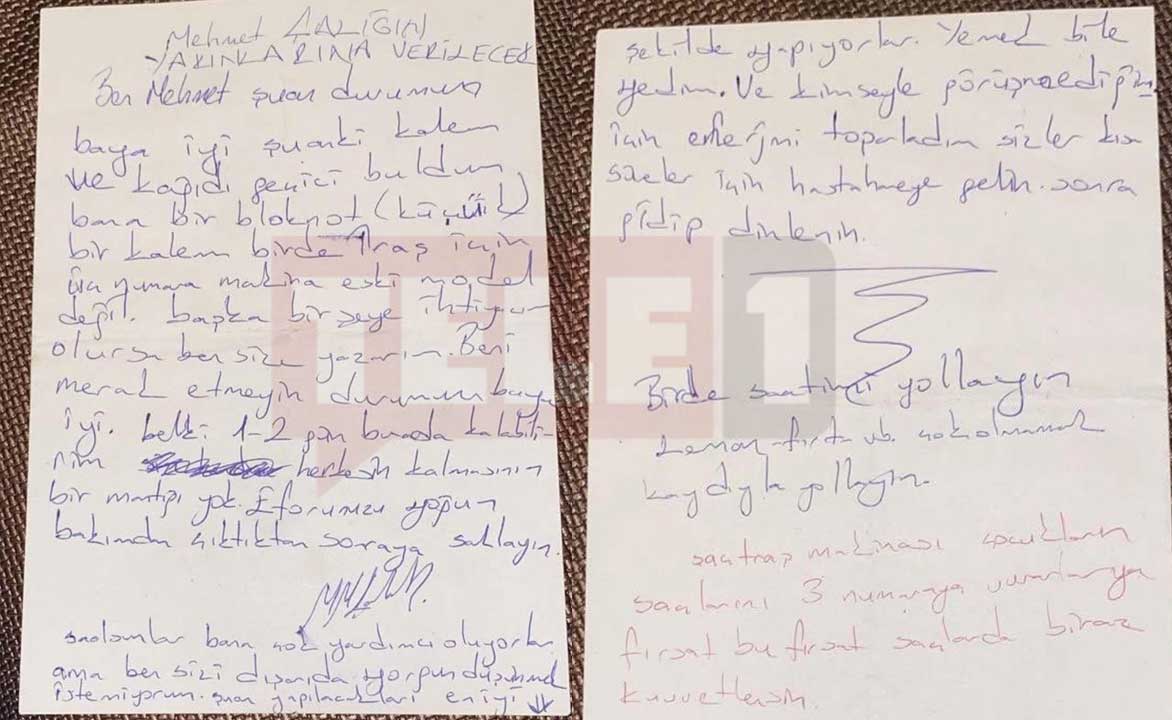 Mehmet ÇALIĞIN
YAKINLARINA VERİLECEK
Ben Mehmet şuan durumum
baya iyi şuanki kalem
ve kağıdı geçici buldum
bana bir bloknot (küçük)
bir kalem birde Traş için
üç numara makina eski model
değil. başka bir şeye ihtiyaç
olursa ben size yazarım. Beni
merak etmeyin durumum baya
iyi. belki 1-2 gün burada kalabili-
rim herkesin kalmasının
bir mantığı yok. Eforunuzu yoğun
bakımdan çıktıktan soraya saklayın.
saolsunlar bana çok yardımcı oluyorlar
ama ben sizi dışarıda yorgun düşürmek
istemiyorum. şuan yapılacakları en iyi
şekilde yapıyorlar. Yemek bile
yedim. Ve kimseyle görüşmediğim
için enerjmi toparladım sizler kısa
süreler için hastahaneye gelin. sonra
gidip dinlenin.
Birde saatimi yollayın
Leman-fırt vb. çok olmamak
kaydıyla yollayın.
saç traş makinası çocukların
saçlarını 3 numaraya vururlarya
fırsat bu fırsat saçlarda biraz
kuvvetlensin.
TELE1